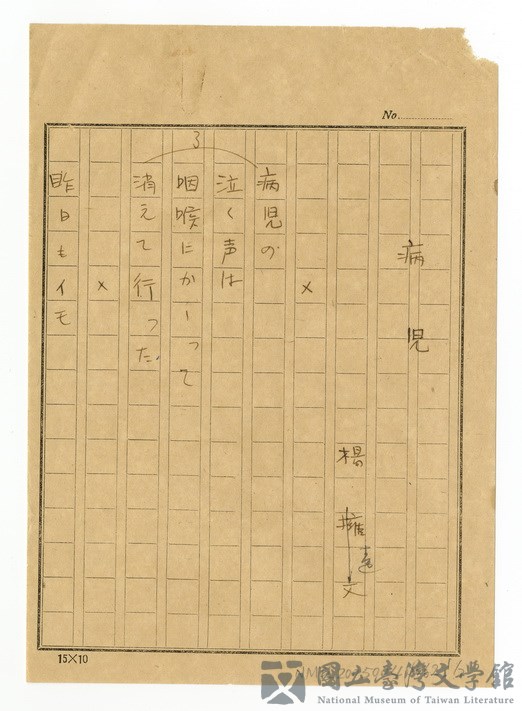 No.
病児
楊
達
文
×
3
病児の
泣く声は
咽喉にかーって
消えて行った
×
昨日もイモ
15×10
國立臺灣文学館
National Museum of Taiwan Literature